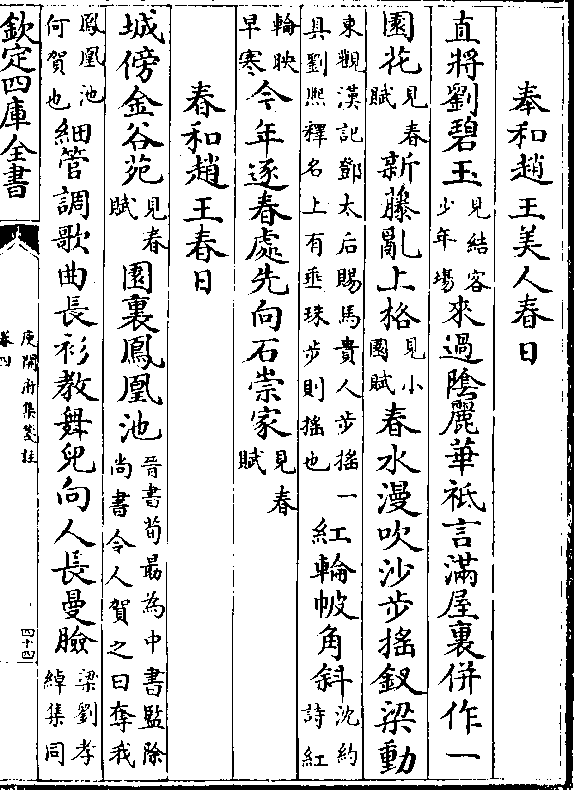 奉和趙王美人春日
直將劉碧玉見結客少年場來過隂麗華祗言滿屋裏併作一
園花見春賦新藤亂上格見小園賦春水漫吹沙步搖釵梁動
東觀漢記鄧太后賜馬貴人步搖一具劉熙釋名上有垂珠步則搖也紅輪帔角斜沈約詩紅
輪映早寒今年逐春處先向石崇家見春賦
春和趙王春日
城傍金谷苑見春賦園裏鳳凰池晉書荀勗為中書監除尚書令人賀之曰奪我
鳳凰池何賀也細管調歌曲長衫教舞兒向人長曼臉梁劉孝綽集同
欽定四庫全書
庾開府集箋註
卷四
四十四